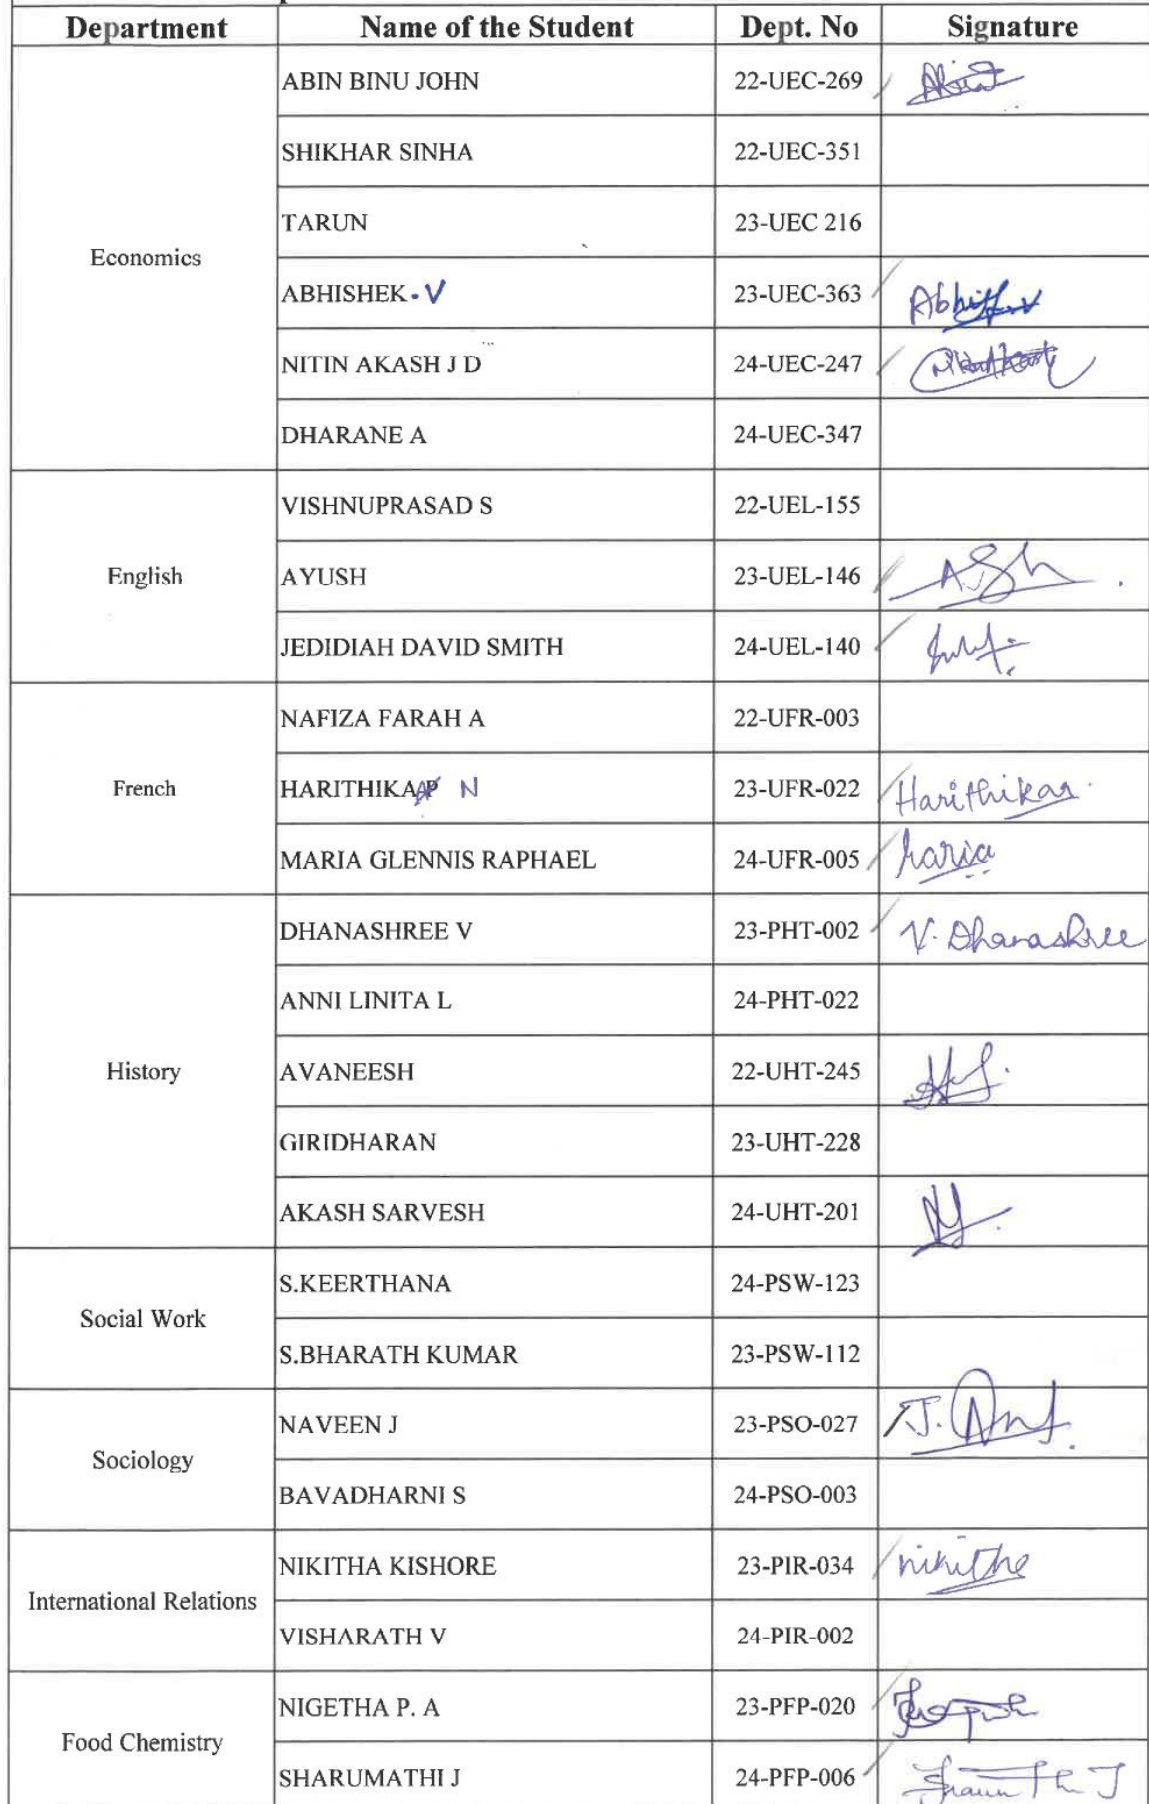 Department Name of the Student Dept. No Signature
Economics
ABIN BINU JOHN 22-UEC-269
SHIKHAR SINHA 22-UEC-351
TARUN 23-UEC 216
ABHISHEK.V 23-UEC-363
NITIN AKASH J D 24-UEC-247
DHARANE A 24-UEC-347
English
VISHNUPRASAD S 22-UEL-155
AYUSH 23-UEL-146
JEDIDIAH DAVID SMITH 24-UEL-140
French
NAFIZA FARAH A 22-UFR-003
HARITHIKA N 23-UFR-022 Harithikaa
MARIA GLENNIS RAPHAEL 24-UFR-005 Maria
History
DHANASHREE V 23-PHT-002 V. Dhanashree
ANNI LINITA L 24-PHT-022
AVANEESH 22-UHT-245
GIRIDHARAN 23-UHT-228
AKASH SARVESH 24-UHT-201
Social Work
S.KEERTHANA 24-PSW-123
S.BHARATH KUMAR 23-PSW-112
Sociology
NAVEEN J 23-PSO-027
BAVADHARNI S 24-PSO-003
International Relations
NIKITHA KISHORE 23-PIR-034 nikitha
VISHARATH V 24-PIR-002
Food Chemistry
NIGETHA P. A 23-PFP-020
SHARUMATHI J 24-PFP-006